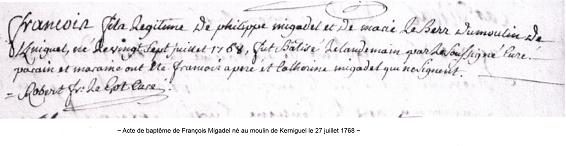 françois fils legitime de philippe migadel et de marie Le Berr du moulin de
Kniguel, né le vingt sept juillet 1768, fut Batisé le landemain par le soussigné curé.
parain et maraine ont été francois apéré et Catherine migadel qui ne signent.
Robert fr. le Got curé.
~ Acte de baptême de François Migadel né au moulin de Kerniguel le 27 juillet 1768 ~